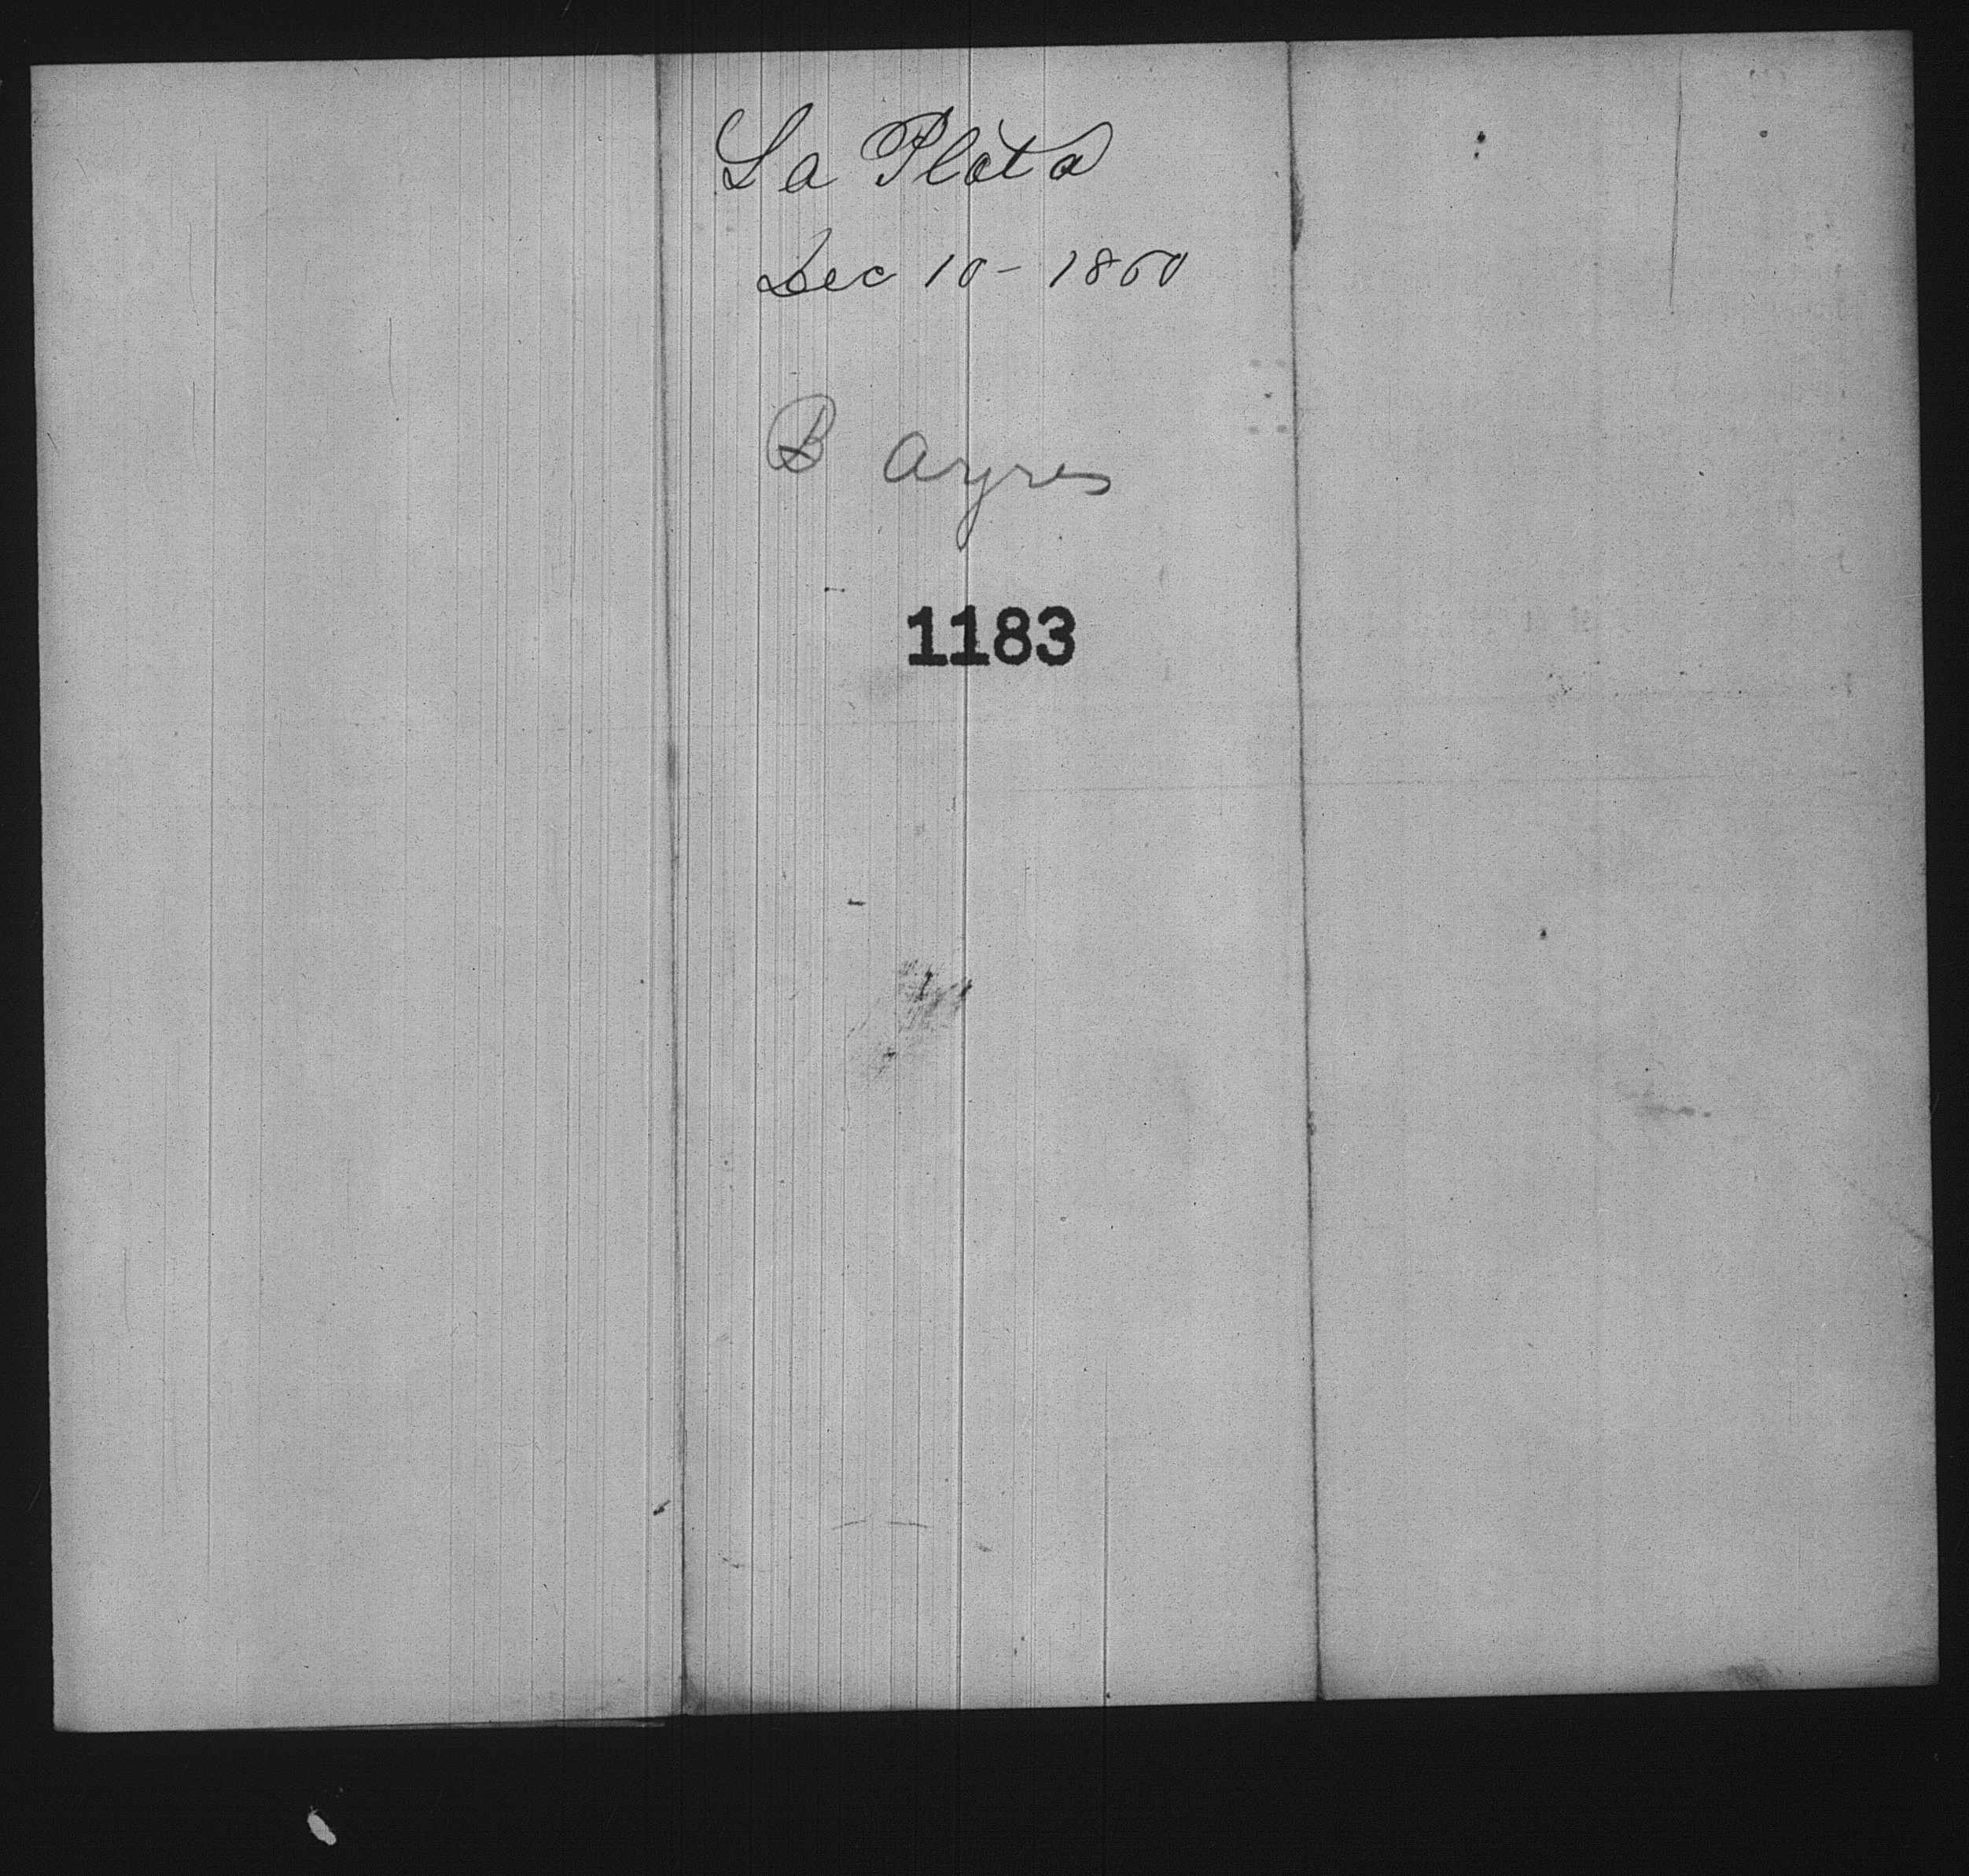 La Plata
Dec 10 - 1860
B Ayres
1183